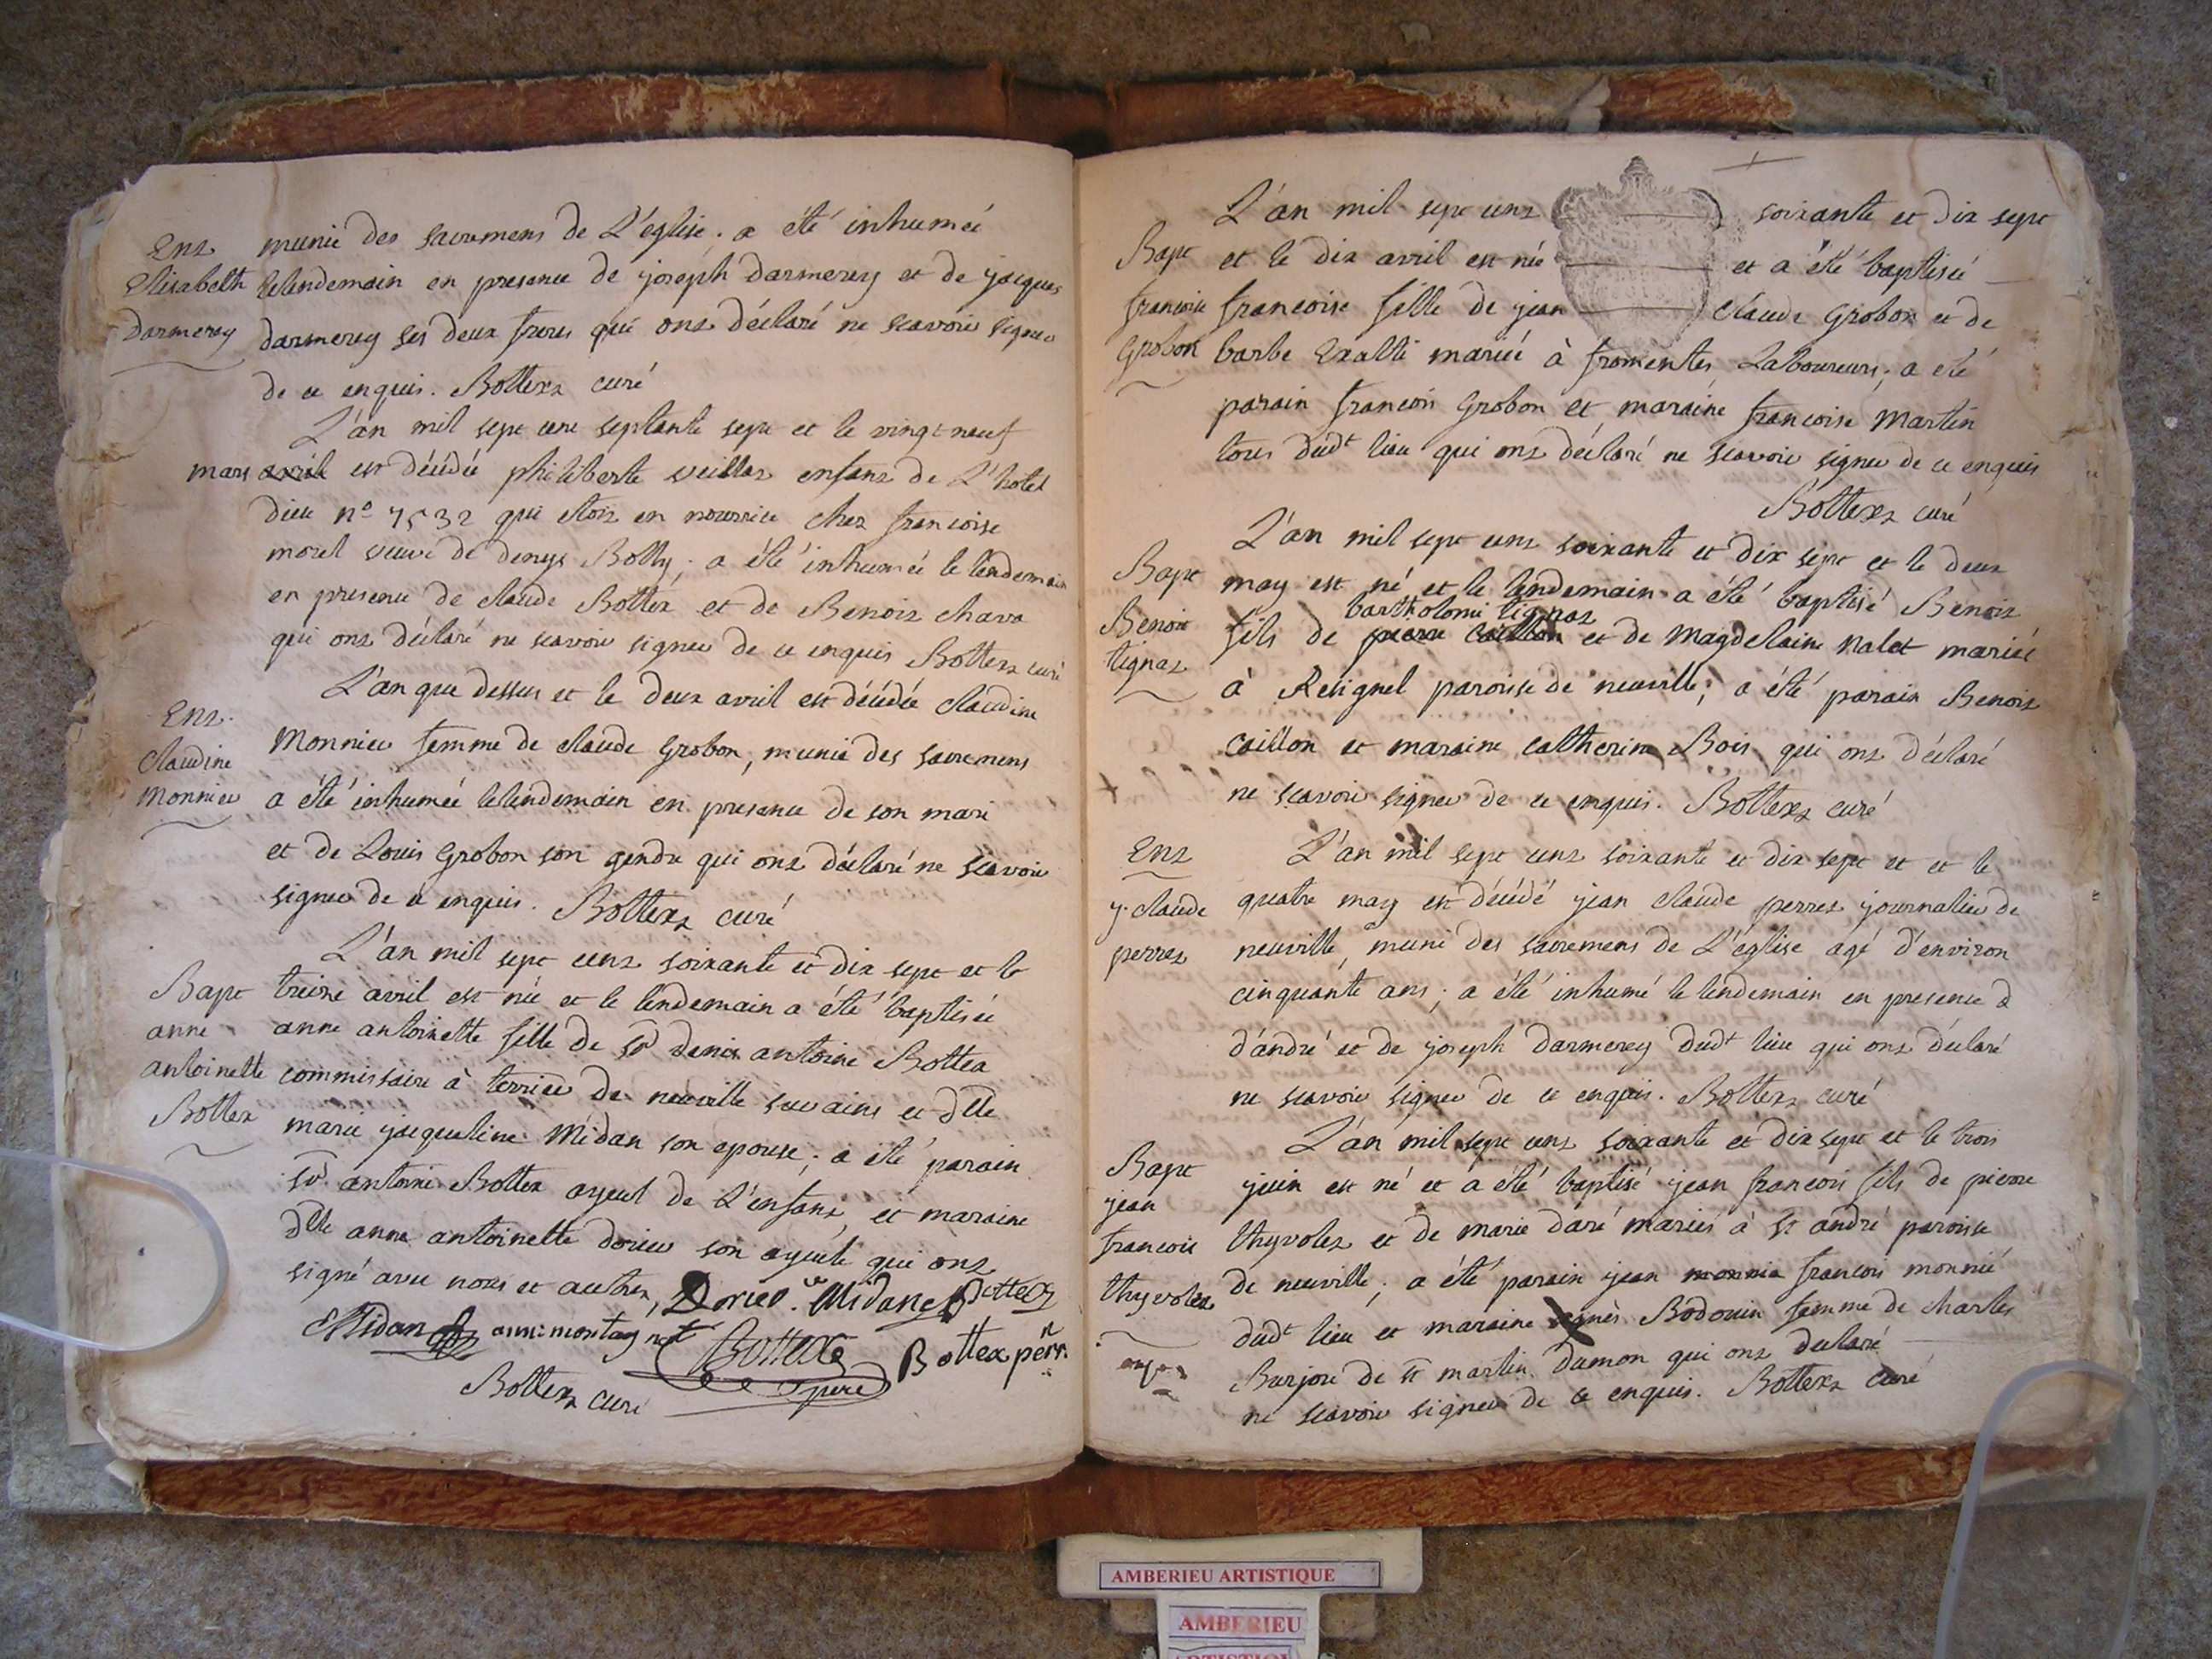 Ent
Elisabeth
Darmerey
munie des sacremens de L'église. a été inhumée
le lendemain en presence de joseph darmerey et de jacques
darmerey ses deux freres qui ont déclaré ne scavoir signer
de ce enquis. Bottex curé
L'an mil sept cent septante sept et le vingt neuf
mars avril est décédée philiberte veillas enfant de L'hotel
dieu n° 7532 qui etoit en nourrice chez francoise
morel veuve de denys Bolly; a été inhumée le lendemain
en presence de claude Bottex et de Benoit chava
qui ont déclaré ne scavoir signer de ce enquis Bottex curé
Ent.
Claudine
Monnier
L'an que dessus et le deux avril est décédée claudine
Monnier femme de claude Grobon, munie des sacremens
a été inhumée le lendemain en presence de son mari
et de Louis Grobon son gendre qui ont déclaré ne scavoir
signer de ce enquis. Bottex curé
Bapt
anne
antoinette
Bottex
L'an mil sept cent soixante et dix sept et le
treize avril est née et le lendemain a été baptisée
anne antoinette fille de sr denis antoine Bottex
commissaire à terrier de neuville sur ains et dlle
marie jacqueline Midan son epouse; a été parain
sr. antoine Bottex ayeul de L'enfant, et maraine
dlle anne antoinette dorier son ayeule qui ont
signé avec nous et autres, Dorier. ve Midane Bottex
Midan anne montagnat Bottex Bottex
père
Bottex curé
Bapt
francoise
Grobon
L'an mil sept cent soixante et dix sept
et le dix avril est née et a été baptisée
francoise fille de jean Claude Grobon et de
barbe Exalti mariés à fromentes Laboureurs; a été
parain francois Grobon et maraine francoise Martin
tous dudt lieu qui ont déclaré ne scavoir signer de ce enquis
Bottex curé
Bapt
Benoit
tignat
L'an mil sept cent soixante et dix sept et le deux
may est né et le lendemain a été baptisé Benoit
bartholomé tignat
fils de pierre caillon et de Magdelaine Nalet mariés
à Resignel paroisse de neuville; a été parain Benoit
caillon et maraine catherine Bois qui ont déclaré
ne scavoir signer de ce enquis. Bottex curé
Ent
j. claude
perret
L'an mil sept cent soixante et dix sept et et le
quatre may est décédé jean claude perret journalier de
neuville, muni des sacremens de L'église agé d'environ
cinquante ans; a été inhumé le lendemain en presence d
d'andré et de joseph darmerey dudt lieu qui ont déclaré
ne scavoir signer de ce enquis. Bottex curé
Bapt
jean
francois
thyvolet
L'an mil sept cent soixante et dix sept et le trois
juin est né et a été baptisé jean francois fils de pierre
thyvolet et de marie daré mariés à st andré paroisse
de neuville; a été parain jean monnie francois monnié
dudt lieu et maraine agnès Bodouin femme de charles
Barjon de st martin dumon qui ont declaré
ne scavoir signer de ce enquis. Bottex curé
AMBERIEU ARTISTIQUE
AMBERIEU
ARTISTIQUE